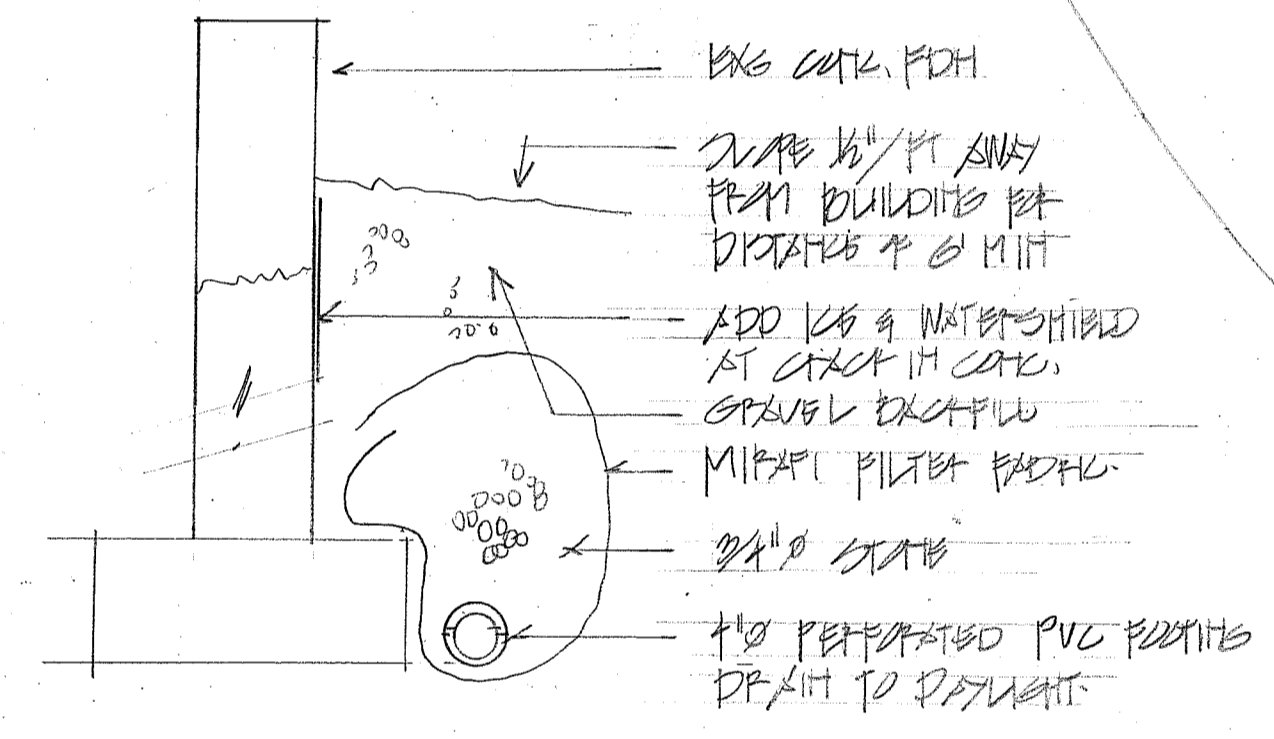 EXG CONC. FDN
SLOPE ½"/FT AWAY
FROM BUILDING FOR
DISTANCE OF 6' MIN
ADD ICE & WATERSHIELD
AT CRACK IN CONC.
GRAVEL BACKFILL
MIRAFI FILTER FABRIC.
3/4"Ø STONE
4"Ø PERFORATED PVC FOOTING
DRAIN TO DAYLIGHT.